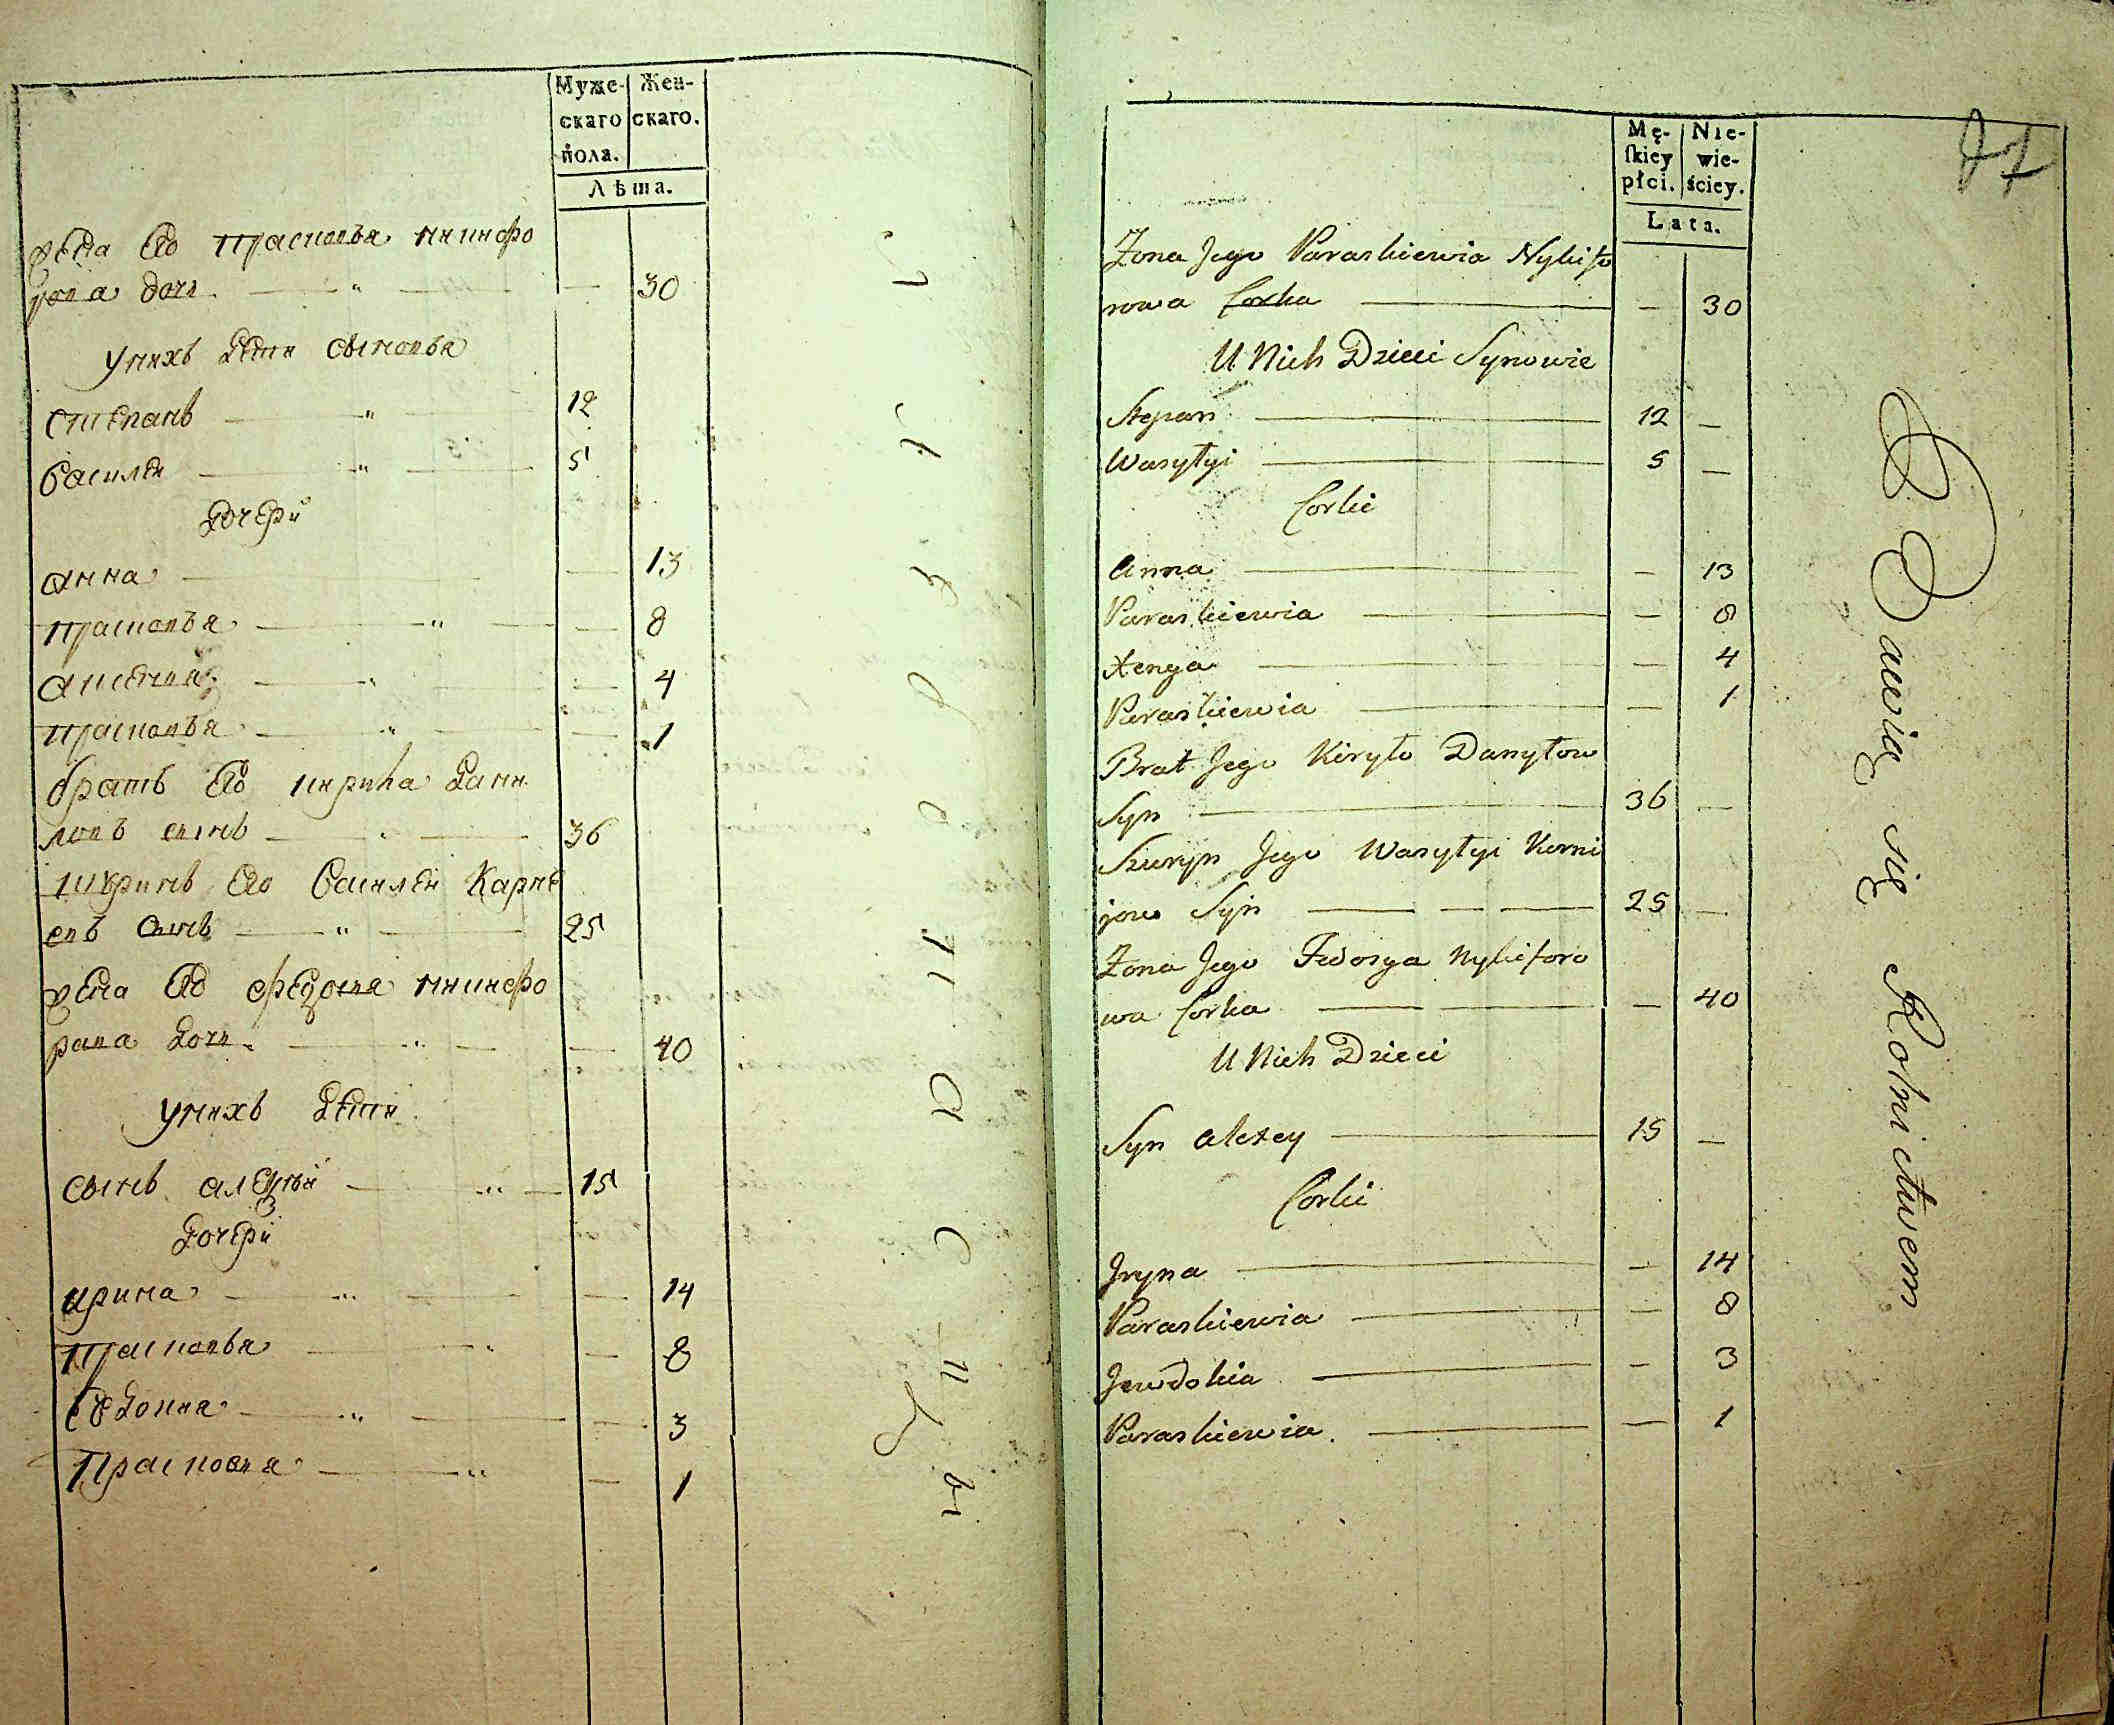 Муже- Жен-
скаго скаго.
пола.
Лѣта.
жена Его прасковья никифо
рова дочь 30
у нихъ дети сыновья
степанъ 12
василей 5
дочери
анна 13
прасковья 8
аксенья 4
прасковья 1
братъ Его кирила дани
ловъ сынъ 36
шуринъ Его василей Карне
евъ сынъ 25
жена Его федосья никифо
рова дочь 40
у нихъ дети
сынъ алексѣй 15
дочери
ирина 14
прасковья 8
евдокия 3
прасковья 1
Mę- Nie-
skiey wie-
płci. ściey.
Lata.
Żona Jego Paraskiewia Nykifo
rowa Corka — 30
U Nich Dzieci Synowie
Stepan 12 —
Wasyłyi 5 —
Corki
Anna — 13
Paraskiewia — 8
Xenya — 4
Paraskiewia — 1
Brat Jego Kiryło Danyłow
Syn 36 —
Szuryn Jego Wasyłyi Korni
jow Syn 25 —
Żona Jego Fedosya Nykiforo
wa Corka — 40
U Nich Dzieci
Syn Alexey 15 —
Corki
Jryna — 14
Paraskiewia — 8
Jewdokia — 3
Paraskiewia — 1
Bawią się Rolnictwem